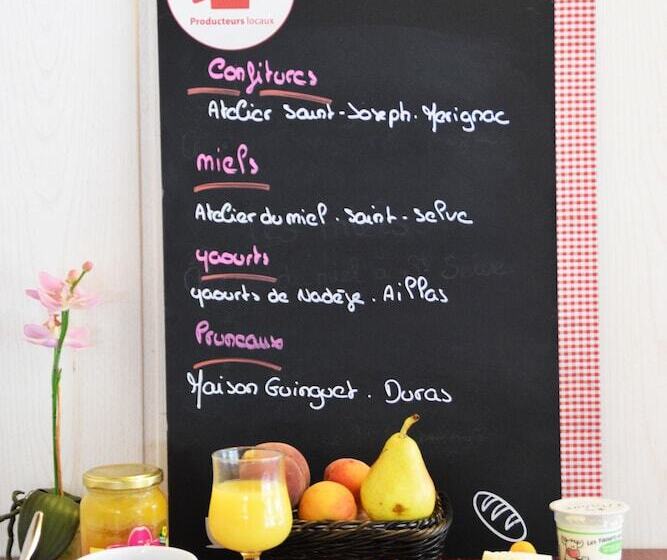 Producteurs locaux
Confitures
Atelier Saint-Joseph. Merignac
miels
Atelier du miel. Saint-Selve
yaourts
yaourts de Nadège. Aillas
Pruneaux
Maison Guinguet. Duras